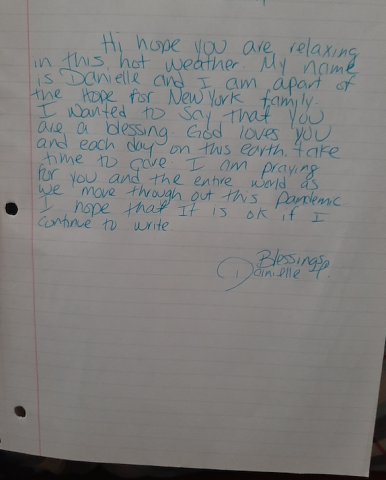 Hi hope you are relaxing
in this hot weather. My name
is Danielle and I am apart of
the Hope for New York family.
I wanted to say that you
are a blessing. God loves you
and each day on this earth. take
time to care. I am praying
for you and the entire world as
we move through out this Pandemic
I hope that It is ok if I
continue to write
Blessings,
Danielle P.